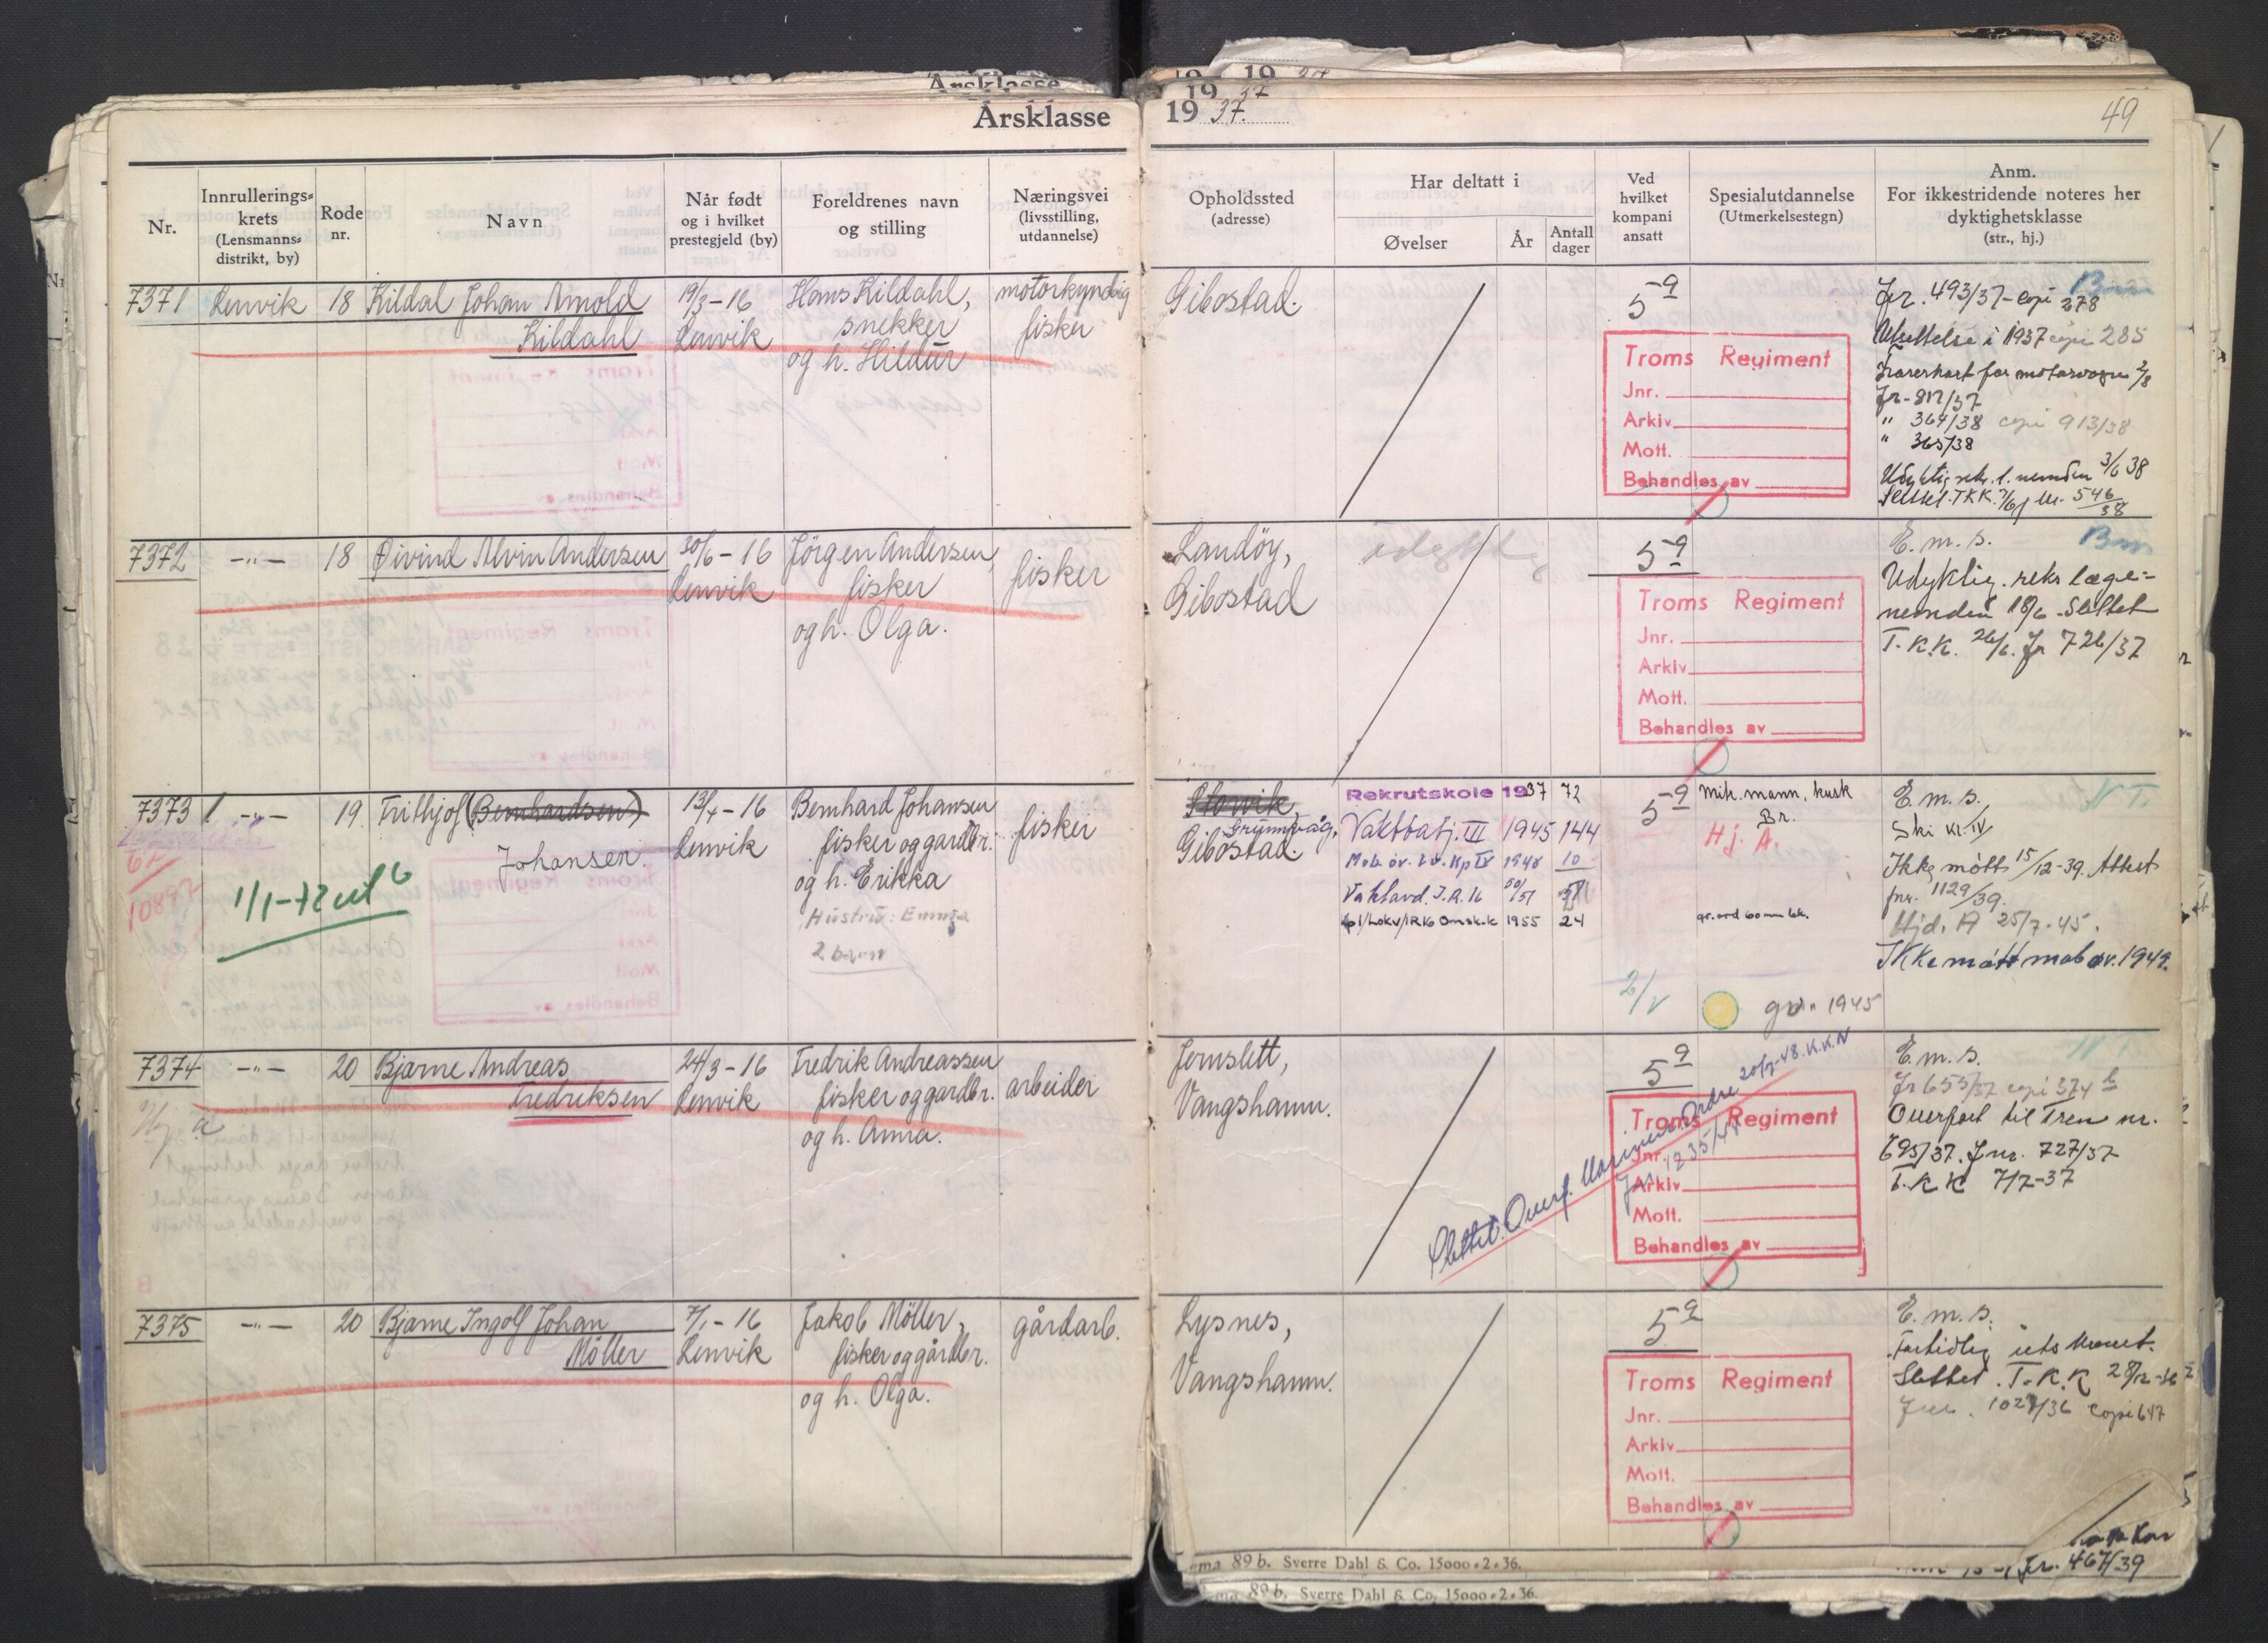 Årsklasse 1937.
49
Nr.
Innrullerings-
krets
(Lensmanns-
distrikt, by)
Rode
nr.
Navn
Når født
og i hvilket
prestegjeld (by)
Foreldrenes navn
og stilling
Næringsvei
(livsstilling,
utdannelse)
Opholdssted
(adresse)
Har deltatt i
Øvelser
År
Antall
dager
Ved
hvilket
kompani
ansatt
Spesialutdannelse
(Utmerkelsestegn)
Anm.
For ikkestridende noteres her
dyktighetsklasse
(str., hj.)
7371 Lenvik 18 Kildal Johan Arnold
Kildahl
19/3-16
Lenvik
Hans Kildahl,
snekker
og h. Hildur
motorkyndig
fisker
Gibostad.
5
Troms Regiment
Jnr.
Arkiv
Mott.
Behandles av
Jr. 493/37 - copi 278
Utsettelse i 1937 copi 285
" 364/38 copi 913/38
" 365/38
3/6 38
546/38
7372 -"- 18 Øivind Alvin Andersen
30/6-16
Lenvik
Jörgen Andersen,
fisker
og h. Olga.
fisker
Landöy,
Gibostad
udyktig
5
Troms Regiment
Jnr.
Arkiv
Mott.
Behandles av
E.m.s.
Udyktig. rekr læge-
nemnden 18/6. Slettet
T.K.K. 26/6. Jr 726/37
7373 -"- 19. Frithjof (Bernhardsen)
Johansen.
10897
1/1-72
13/4-16
Lenvik
Bernhard Johansen
fisker og gardbr.
og h. Erikka
Hustru: Emma
2 barn
fisker
Gibostad.
Rekrutskole 1937 72
Vaktbatj. III 1945 144
1948 10
Vaktavd. I.R.16 50/51
1955 24
5
Mitr. mann, kusk
Br.
Hj. A.
2/V
1945
E.m.s.
Ski kl. IV
Ikke møtt 15/12-39. Attest
jnr. 1129/39.
Hjd. A 25/7-45.
Ikke møtt mob øv. 1949.
7374 -"- 20 Bjarne Andreas
Fredriksen
24/3-16
Lenvik
Fredrik Andreassen
fisker og gardbr.
og h. Anna.
arbeider
Jernslett,
Vangshamn.
5
Slettet. Overf. Marinen. Ordre 20/7-48. K.K.N
Jnr. 1235/48
Troms Regiment
Jnr.
Arkiv
Mott.
Behandles av
E.m.s.
Jr 655/37 copi 374
Overført til Tren nr.
695/37. Jnr. 727/37
T.K.K 7/7-37
7375 -"- 20 Bjarne Ingolf Johan
Möller
7/1-16
Lenvik
Jakob Möller,
fisker og gårdbr.
og h. Olga.
gårdarb.
Lysnes,
Vangshamn.
5
Troms Regiment
Jnr.
Arkiv
Mott.
Behandles av
E.m.s.
Slettet. T.K.K 28/12-36
1027/36 copi 647
89 b. Sverre Dahl & Co. 15000-2-36.
89 b. Sverre Dahl & Co. 15000-2-36.
Jr. 467/39